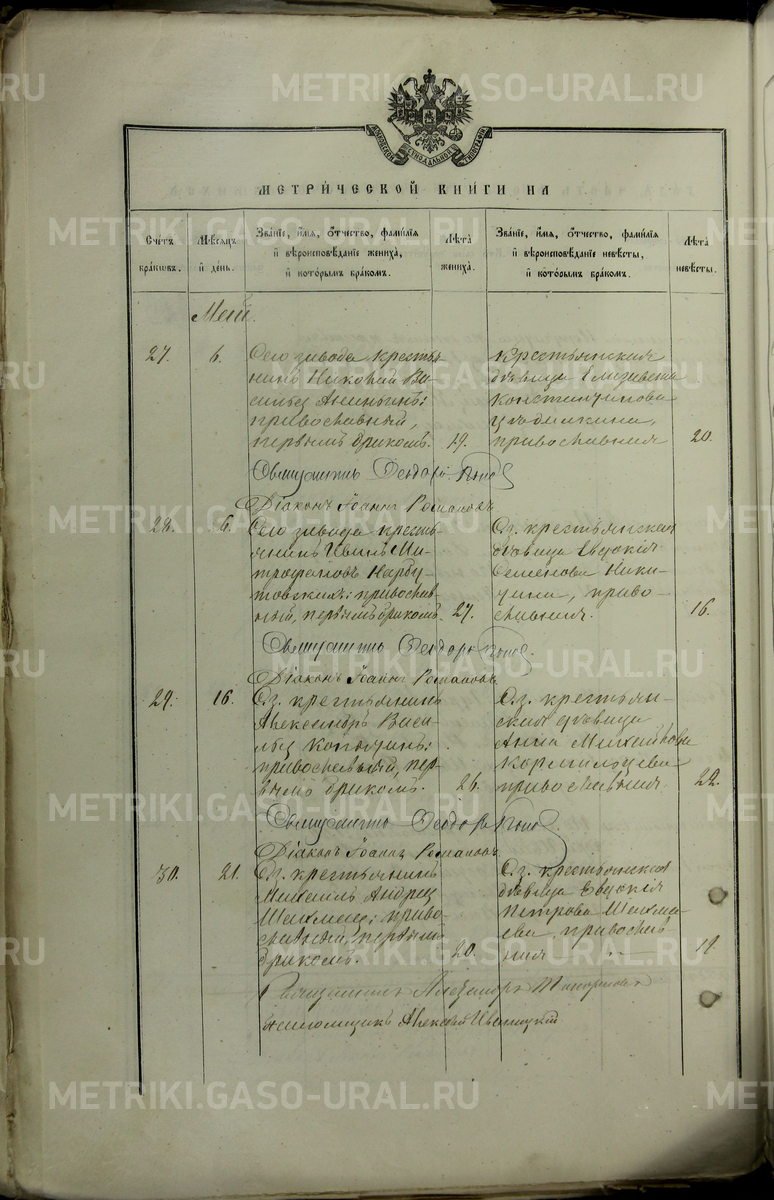 МЕТРИ́ЧЕСКОЙ КНИ́ГИ НА
Сче́тъ бра́ковъ.
Мѣ́сяцъ и҆ де́нь.
Зва́нїе, и҆́мя, ѻ҆́тчество, фами́лїя
и҆ вѣроисповѣ́данїе жениха̀,
и҆ кото́рымъ бра́комъ.
Лѣ́та жениха̀.
Зва́нїе, и҆́мя, ѻ҆́тчество, фами́лїя
и҆ вѣроисповѣ́данїе невѣ́сты,
и҆ кото́рымъ бра́комъ.
Лѣ́та невѣ́сты.
Май.
27.
6.
Сего завода крестья
нинъ Николай Ва-
сильев Ананьинъ:
православный,
первымъ бракомъ.
19.
Крестьянская
дѣвица Елизавета
Константинова
православная
20.
Священникъ Ѳеодоръ
Діаконъ Іоаннъ Романовъ
28.
6.
Сего завода кресть-
янинъ Иванъ Ми-
трофановъ Нарбу-
товскихъ: православ-
ный, первымъ бракомъ.
27.
С.з. крестьянская
дѣвица Евдокія
Семенова Ники-
тина, право-
славная.
16.
Священникъ Ѳеодоръ
Діаконъ Іоаннъ Романовъ
29.
16.
С.з. крестьянинъ
Александръ Васи-
льев Копачинъ:
православный, пер-
вымъ бракомъ.
26.
С.з. крестьян-
ская дѣвица
Анна Михайлова
православная
22.
Священникъ Ѳеодоръ
Діаконъ Іоаннъ Романовъ
30.
21.
С.з. крестьянинъ
Михаилъ Андреев
Шахмаев: право-
славный, первымъ
бракомъ.
20.
С.з. крестьянская
дѣвица Евдокія
Петрова Шахма-
ева православ-
ная
19
Священникъ Александръ
Псаломщикъ Алексѣй Иваницкій
METRIKI.GASO-URAL.RU